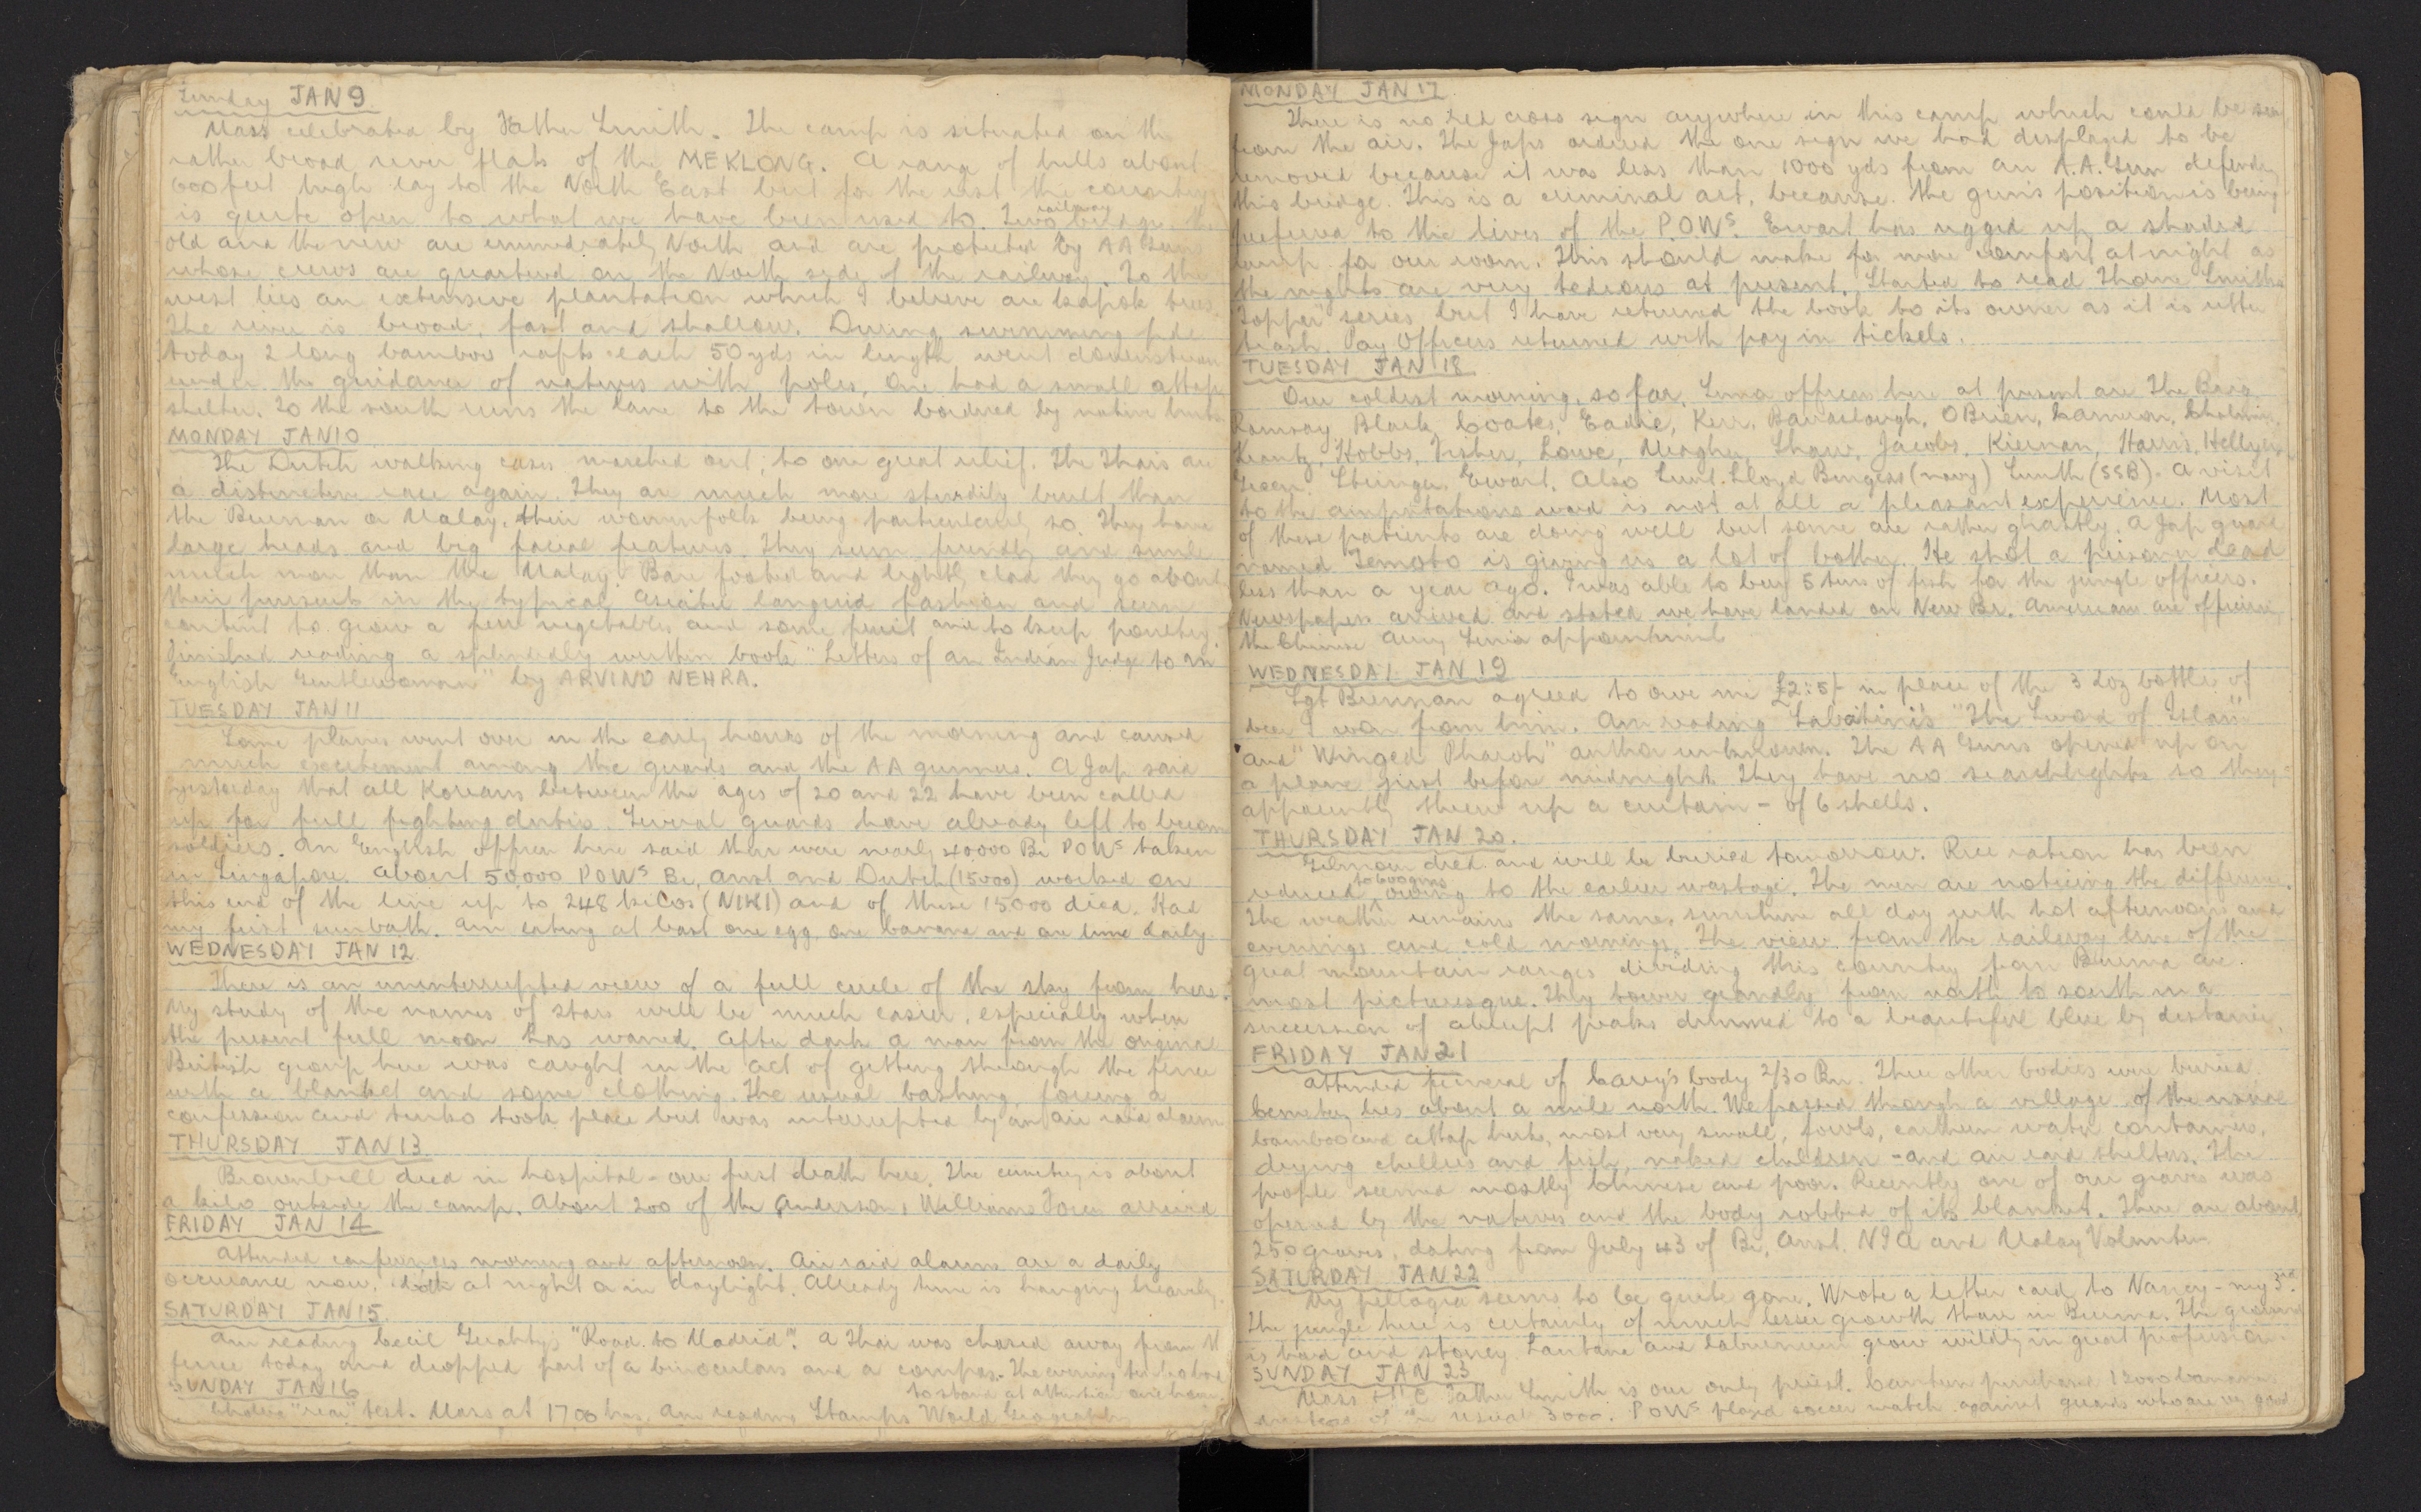 Sunday JAN 9
Mass celebrated by Father Smith. The camp is situated on the
rather broad river flats of the MEKLONG. A range of hills about
600 feet high lay to the North East but for the rest the country
is quite open to what we have been used to. Two railway bridges the
old and the new are immediately North and are protected by AA Guns
whose crews are quartered on the North side of the railway. To the
west lies an extensive plantation which I believe are kapok trees.
The river is broad, fast and shallow. During swimming pde
today 2 long bamboo rafts each 50 yds in length went downstream
under the guidance of natives with poles. One had a small attap
shelter. To the south runs the lane to the town bordered by native huts.
MONDAY JAN 10
The Dutch walking cases marched out, to our great relief. The Thais are
a distinctive race again. They are much more sturdily built than
the Burman or Malay, their womenfolk being particularly so. They have
large heads and big facial features. They seem friendly and smile
much more than the Malay. Bare footed and lightly clad they go about
their pursuits in the typical Asiatic languid fashion and seem
content to grow a few vegetables and some fruit and to keep poultry.
Finished reading a splendidly written book "Letters of an Indian Judge to an
English Gentlewoman" by ARVIND NEHRA.
TUESDAY JAN 11
Some planes went over in the early hours of the morning and caused
much excitement among the guards and the AA gunners. A Jap said
yesterday that all Koreans between the ages of 20 and 22 have been called
up for full fighting duties. Several guards have already left to become
soldiers. An English officer here said there were nearly 40000 Br POWs taken
in Singapore. About 50,000 POWs Br, Aust and Dutch (15000) worked on
this end of the line up to 248 kilos (NIKI) and of these 15000 died. Had
my first sunbath. Am eating at least one egg, one banana and one lime daily.
WEDNESDAY JAN 12
There is an uninterrupted view of a full circle of the sky from here.
My study of the names of stars will be much easier, especially when
the present full moon has waned. After dark a man from the original
British group here was caught in the act of getting through the fence
with a blanket and some clothing. The usual bashing, forcing a
confession and tenko took place but was interrupted by an air raid alarm
THURSDAY JAN 13
Brownbill died in hospital - our first death here. The cemetery is about
a kilo outside the camp. About 200 of the Anderson, Williams Force arrived
FRIDAY JAN 14
Attended conferences morning and afternoon. Air raid alarms are a daily
occurance now, both at night or in daylight. Already time is hanging heavily.
SATURDAY JAN 15
Am reading Cecil Gerahty's "Road to Madrid". A Thai was chased away from the
fence today and dropped part of a binoculars and a compass. The evening
to stand at attention one hour.
SUNDAY JAN 16
Cholera "rear" test. Mass at 1700 hrs. Am reading Stamps World Geography

MONDAY JAN 17
There is no Red cross sign anywhere in this camp which could be seen
from the air. The Japs ordered the one sign we had displayed to be
removed because it was less than 1000 yds from an A.A. Gun defending
this bridge. This is a criminal act, because the gun's position is being
preferred to the lives of the P.O.Ws. Ewart has rigged up a shaded
lamp for our room. This should make for more comfort at night as
the nights are very tedious at present. Started to read Thorne Smith's
Topper series but I have returned the book to its owner as it is utter
trash. Pay Officers returned with pay in tickels.
TUESDAY JAN 18
Our coldest morning, so far. officers here at present are The Brig.
Ramsay, Black, Coates, Eadie, Kerr, Barraclough, OBrien, Cameron, Chalmers,
Krantz, Hobbs, Fisher, Lowe, Meagher, Shaw, Jacobs, Kiernan, Harris, Hellyer,
Green, Stringer, Ewart. Also Lieut. Lloyd Burgess (navy) Smith (SSB). A visit
to the amputations ward is not at all a pleasant experience. Most
of these patients are doing well but some are rather ghastly. A Jap guard
named Temoto is giving us a lot of bother. He shot a prisoner dead
less than a year ago. I was able to buy 5 tins of fish for the jungle officers.
Newspapers arrived and stated we have landed on New Br. Americans are officering
the Chinese army appointments
WEDNESDAY JAN 19
Sgt Brennan agreed to owe me £2:5/- in place of the 3 doz bottles of
beer I won from him. Am reading Sabatini's "The Sword of Islam"
and "Winged Pharoh" author unknown. The AA Guns opened up on
a plane just before midnight. They have no searchlights so they
apparently threw up a curtain - of 6 shells.
THURSDAY JAN 20.
Gilmour died and will be buried tomorrow. Rice ration has been
reduced to 600 gms owing to the earlier wastage. The men are noticing the difference.
The weather remains the same, sunshine all day with hot afternoons and
evenings and cold mornings. The view from the railway line of the
great mountain ranges dividing this country from Burma are
most picturesque. They tower grandly from north to south in a
succession of abrupt peaks dimmed to a beautiful blue by distance.
FRIDAY JAN 21
Attended funeral of Carey's body 2/30 Bn. Three other bodies were buried.
Cemetery lies about a mile north. We passed through a village of the usual
bamboo and attap huts, most very small, fowls, earthern water containers,
drying chillies and fish, naked children - and air raid shelters. The
people seemed mostly Chinese and poor. Recently one of our graves was
opened by the natives and the body robbed of its blanket. There are about
250 graves, dating from July 43 of Br, Aust. NIA and Malay Volunteers
SATURDAY JAN 22
My pellagra seems to be quite gone. Wrote a letter card to Nancy - my 3rd.
The jungle here is certainly of much lesser growth than in Burma. The ground
is hard and stoney. Lantana and laburnum grow wildly in great profusion.
SUNDAY JAN 23
Mass + H C Father Smith is our only priest. Canteen purchased 12000 bananas
instead of the usual 3000. POWs played soccer match against guards who are very good